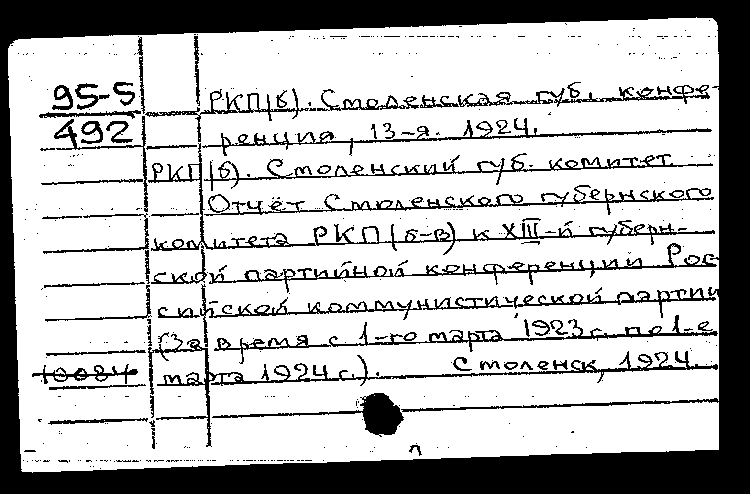 95-5
492
РКП(б). Смоленская губ. конфе-
ренция, 13-я. 1924.
РКП(б). Смоленский губ. комитет
Отчёт Смоленского губернского
комитета РКП(б-в) к XIII-й губерн-
ской партийной конференции Рос-
сийской коммунистической партии
(За время с 1-го марта 1923 г. по 1-е
марта 1924 г.). Смоленск, 1924.
10084